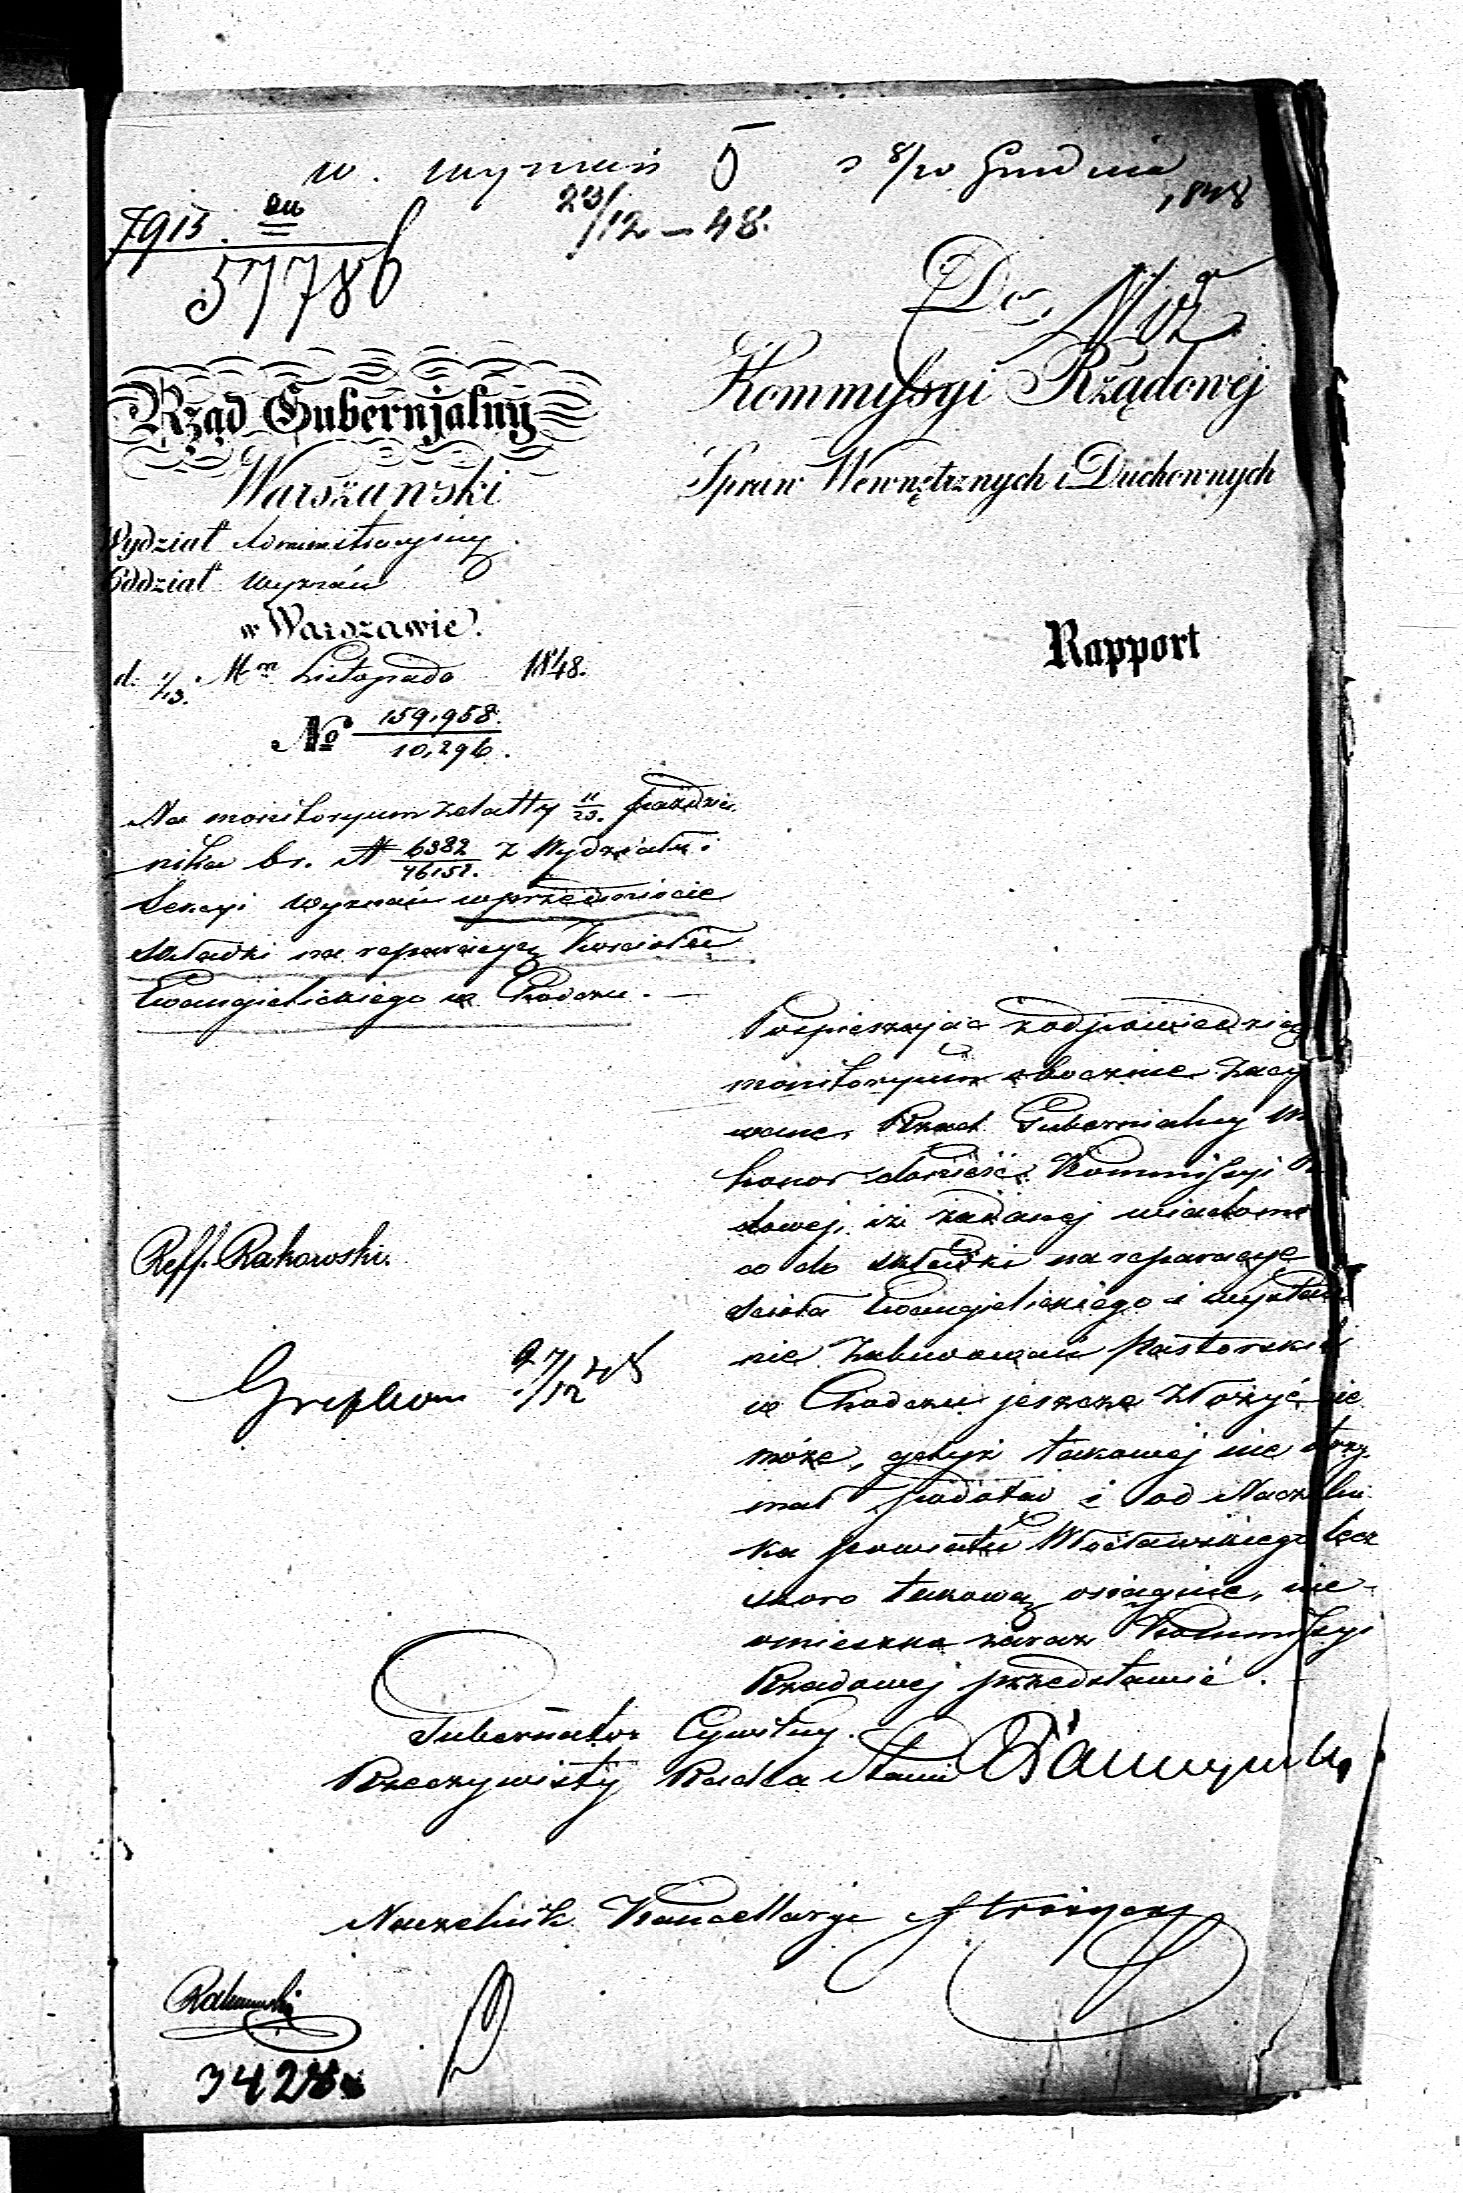 w. wyznań 5 z 8/20 Grudnia
1848
23/12 – 48.
7915
57786
Do
Kommyssyi Rządowej
Spraw Wewnętrznych i Duchownych
Rząd Gubernjalny
Warszawski
Wydział Administracyjny
Oddział Wyznań
w Warszawie.
d. 1/13. Mca Listopada 1848.
No 159,958.
10,296.
Rapport
Na monitoryum z datty 11/23. Paździer
nika br. N 6382/46151. z Wydziału i
Sekcyi Wyznań w przedmiocie
składki na reparacyą Kościoła
Ewangielickiego w Chodczu. –
Pospieszając z odpowiedzią
monitoryum obocznie zacy
wane, Rząd Gubernialny m
honor donieść Kommissyi
dowej, iż żądanej wiadomo
co do składki na reparacye
ścioła Ewangielickiego i wystawie
nie Zabudowań Pastorskich
w Chodczu jeszcze złożyć nie
może, gdyż takowej nie otrzy
mał dodotąd i od Naczelni
ka powiatu Włocławskiego lecz
skoro takową osiągnie, nie
omieszka zaraz Kommissyi
Rządowej przedstawić.
Reff. Rakowski.
27/12 48
Gubernator Cywilny.
Rzeczywisty Radca Stanu
Naczelnik Kancellaryi
Rakowski
3428